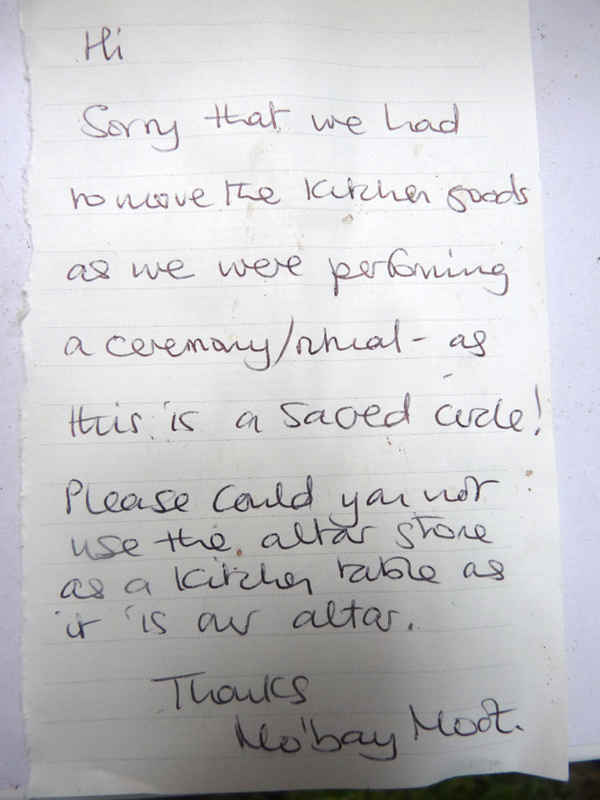 Hi
Sorry that we had
to move the kitchen goods
as we were performing
a ceremony/ritual - as
this is a sacred circle!
Please could you not
use the altar stone
as a kitchen table as
it is our altar.
Thanks
Mo'bay Moot.